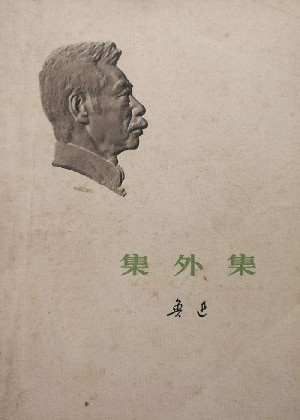 集外集
鲁迅